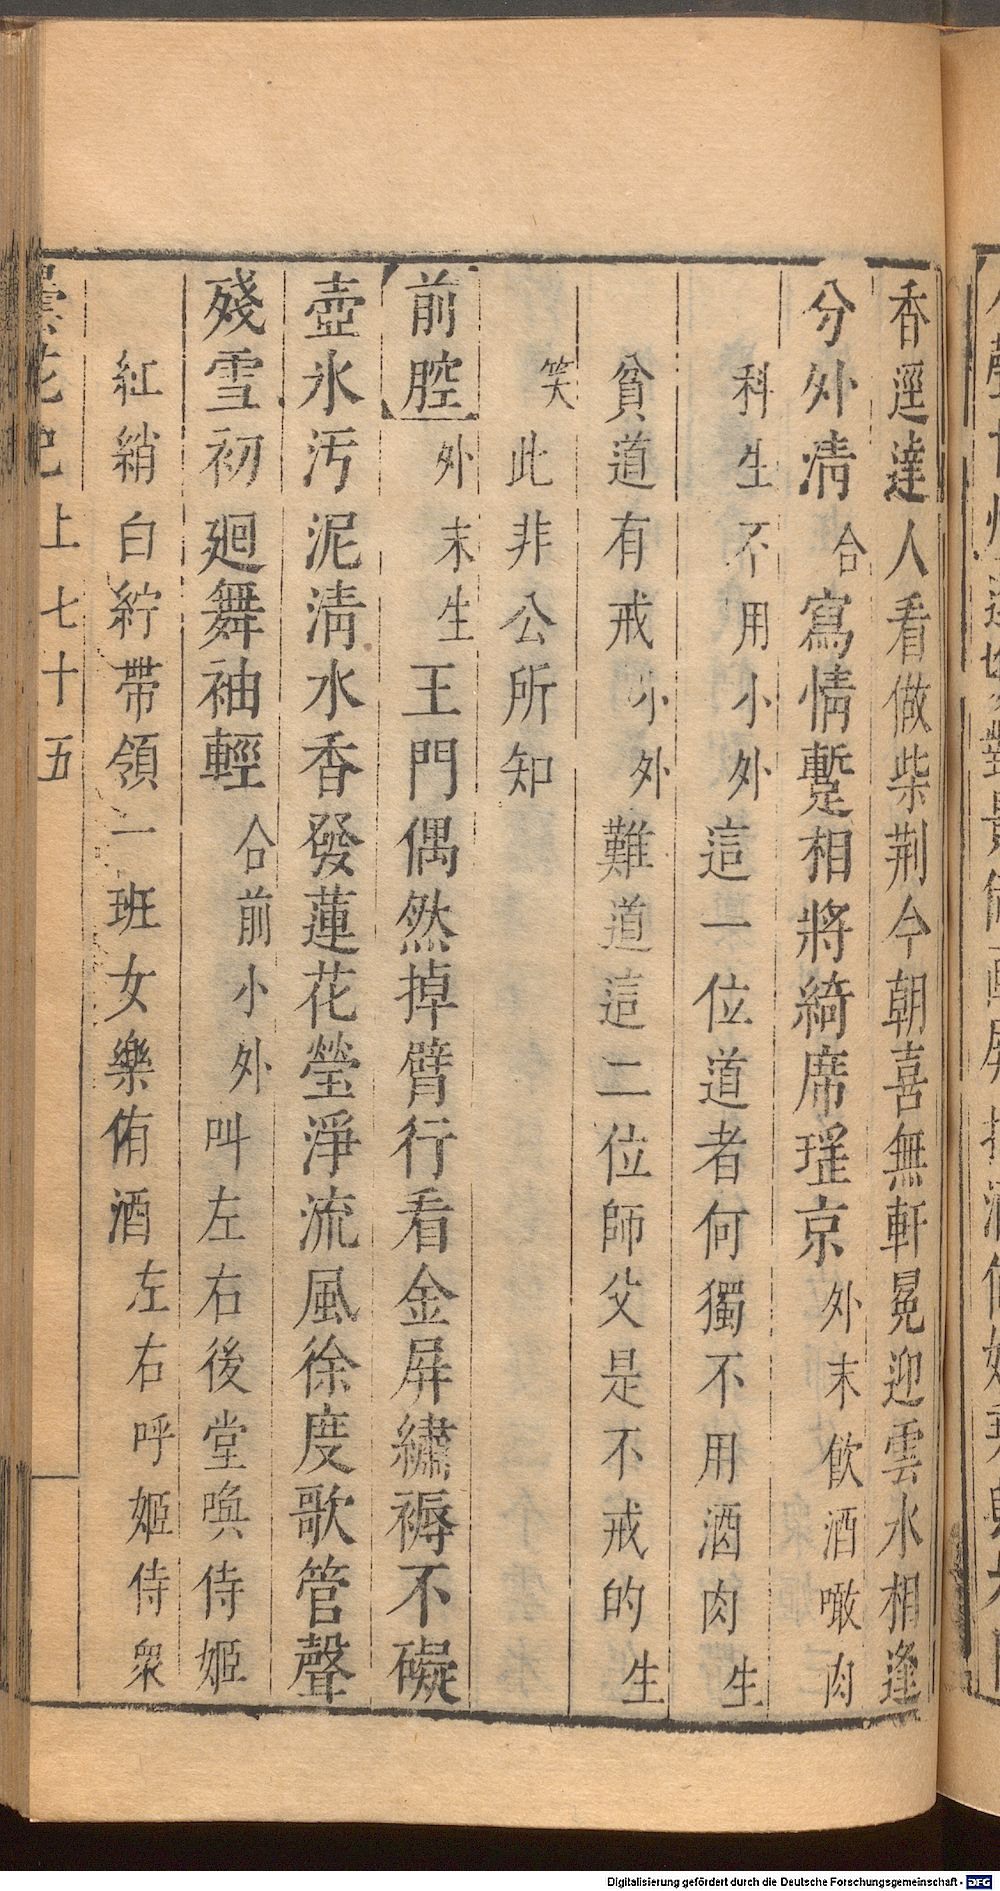 香逕達人看做柴荆今朝喜無軒冕迎雲水相逢
分外清合寫情蹔相將綺席瑶京外末飲酒噉肉
科生不用小外這一位道者何獨不用酒肉生
貧道有戒小外難道這二位師父是不戒的生
笑此非公所知
前腔外末生王門偶然掉臂行看金屏繡褥不礙
壺氷汚泥清水香發蓮花瑩淨流風徐度歌管聲
殘雪初廻舞袖輕合前小外叫左右後堂喚侍姬
紅綃白紵帶領一班女樂侑酒左右呼姬侍衆
曇花記上七十五
Digitalisierung gefördert durch die Deutsche Forschungsgemeinschaft - DFG